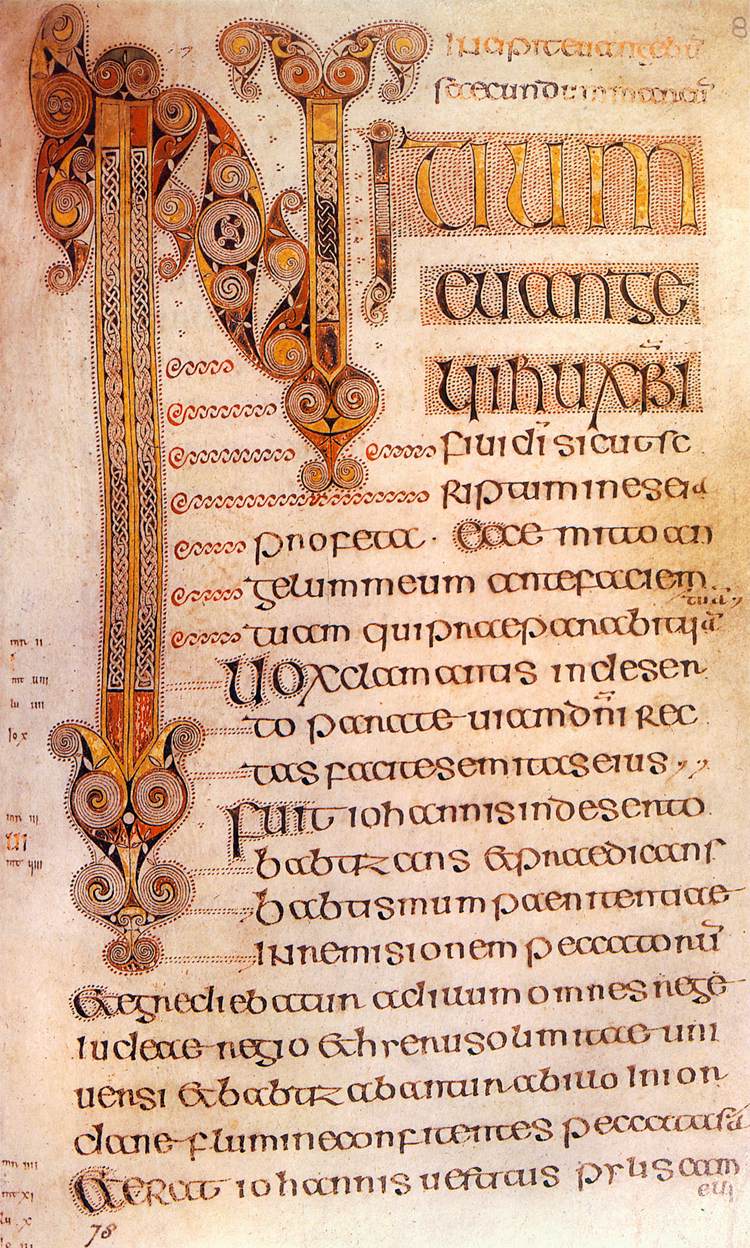 Incipit evangelii
secundum marcum
INITIUM
evange
lii ihu xpi
filii di sicut sc
riptum in eseia
profeta. Ecce mitto an
gelum meum ante faciem
tuam
tuam qui praeparabit uiã
Uox clamantis in deser
to parate uiam dni rec
tas facite semitas eius
fuit iohannis in deserto
babtizans & praedicans
babtismum paenitentiae
in remisionem peccatorū
& egrediebatur ad illum omnes rege
iudeae regio & hierusolimitae uni
uersi & babtizabantur ab illo in ior
dane flumine confitentes peccata sã
& erat iohannis uestitus pylis cam
eli
78